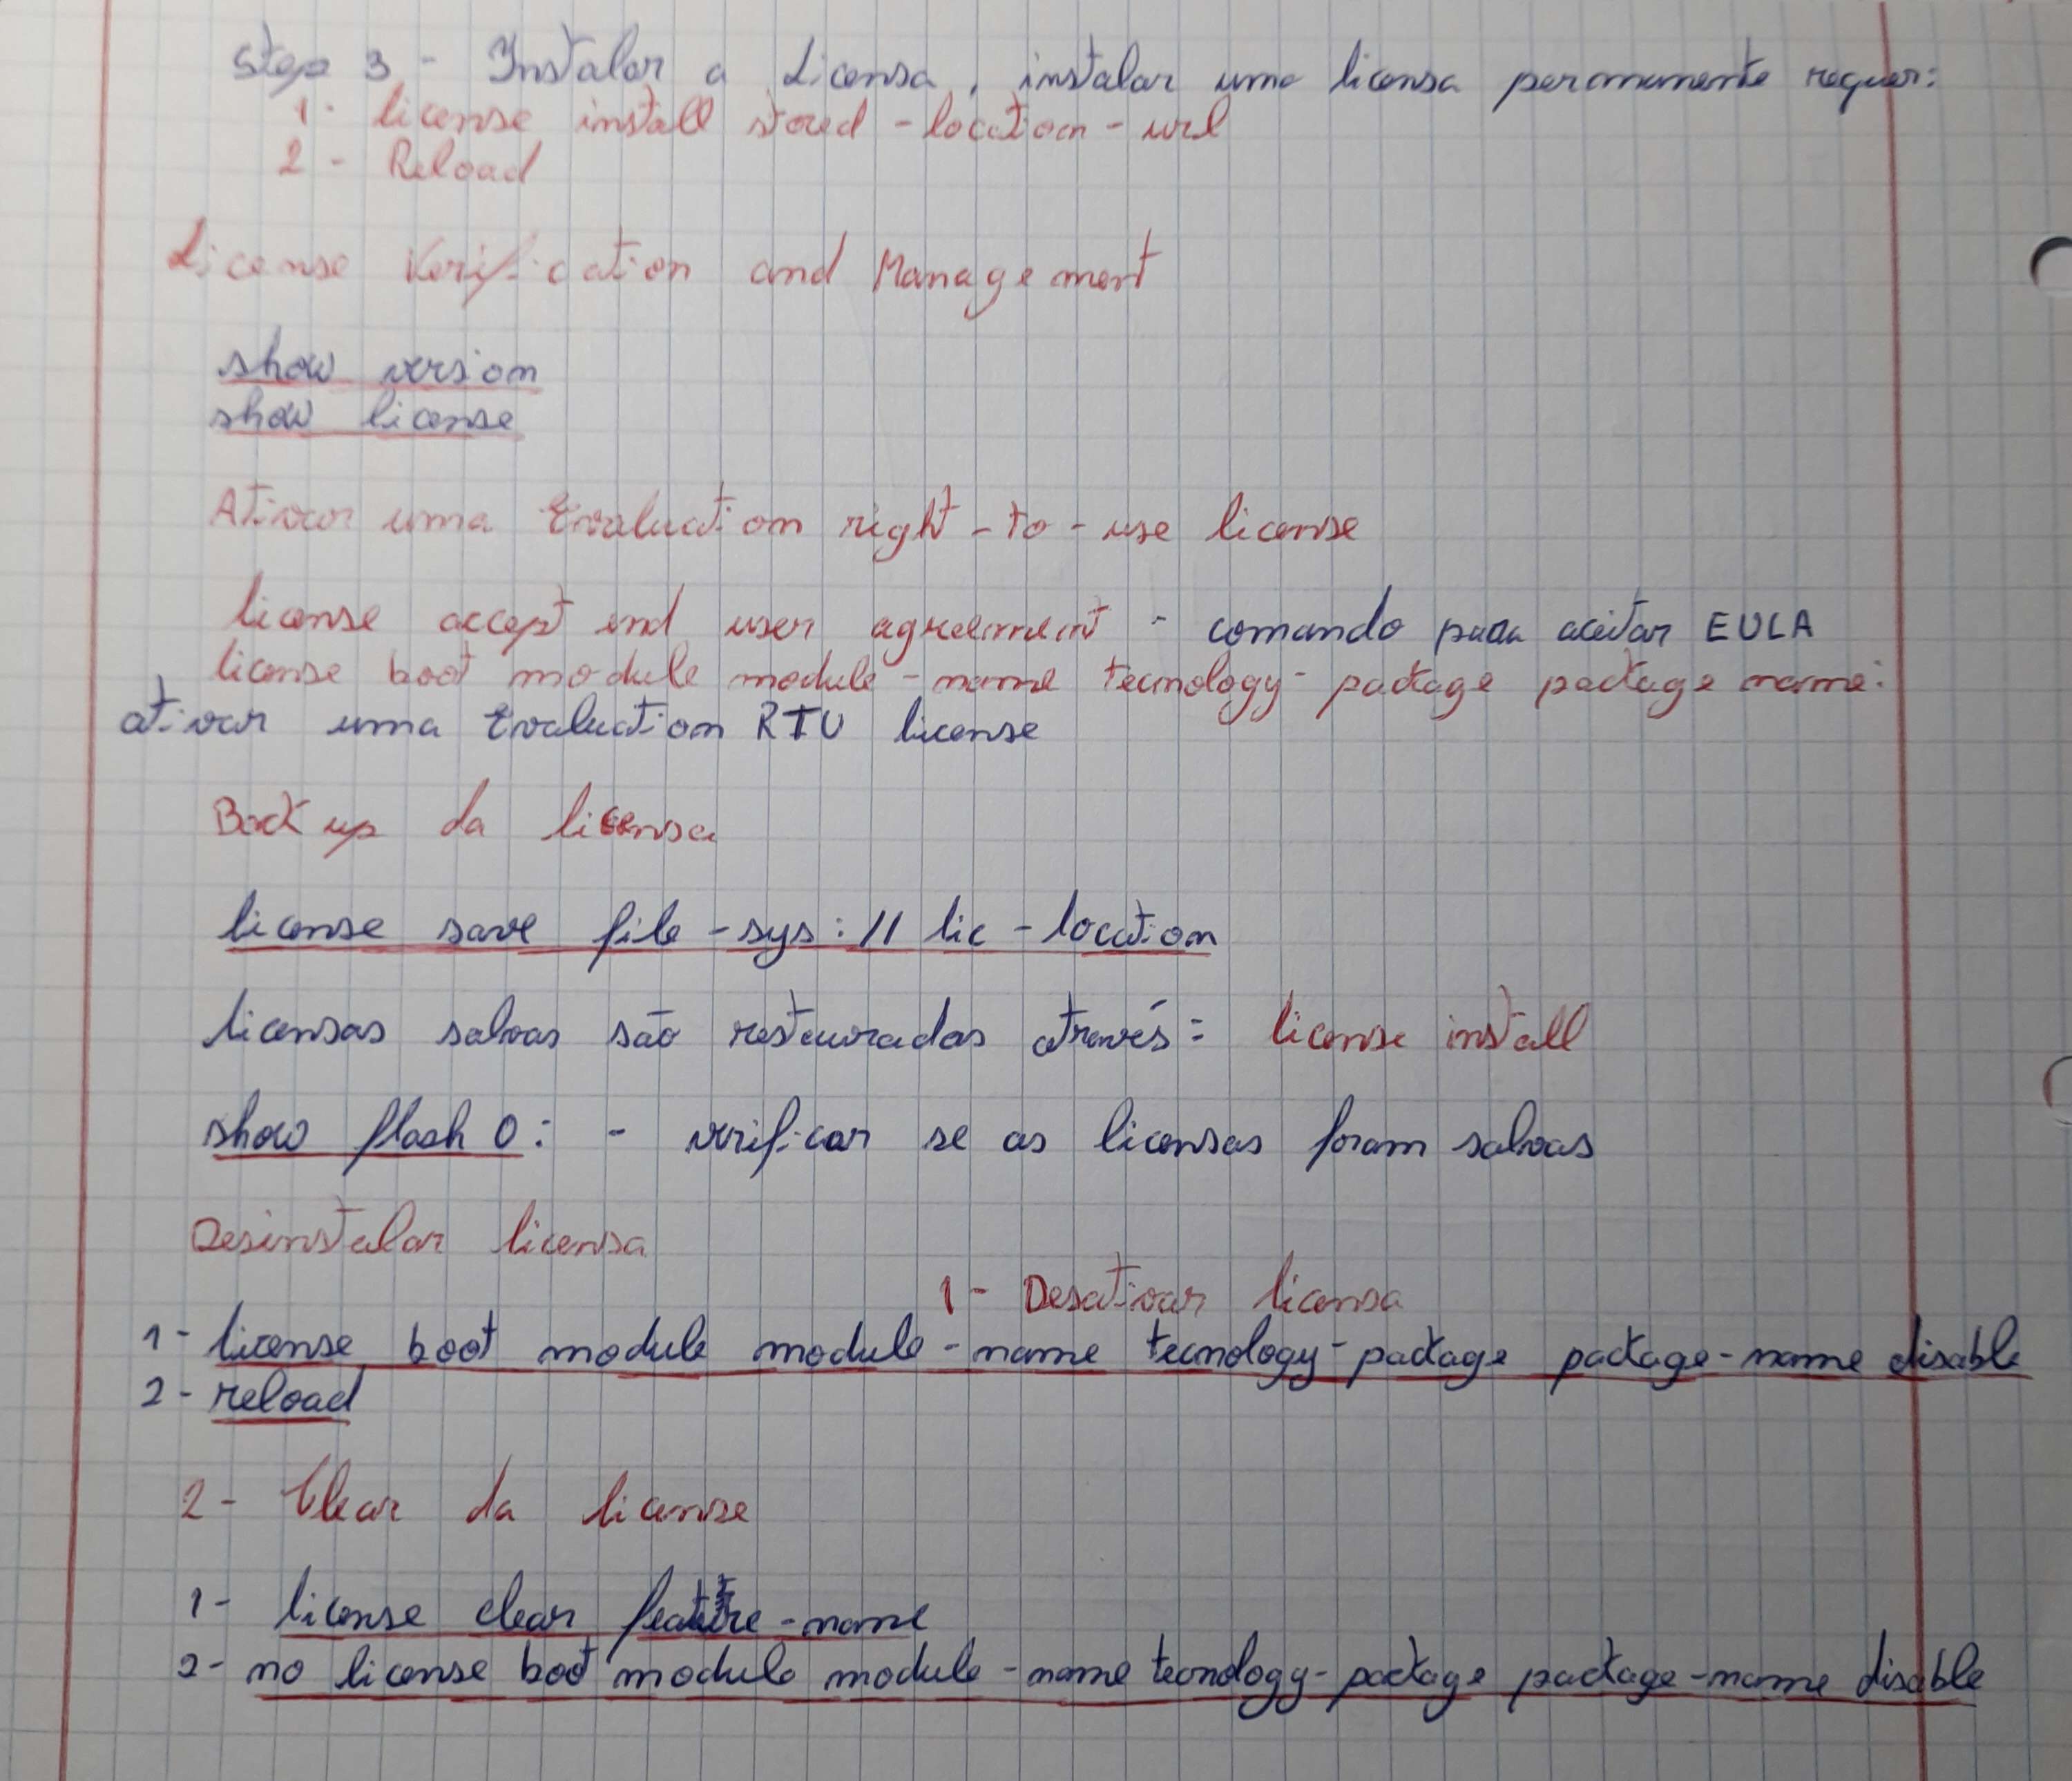 Step 3 - Instalar a Licensa, instalar uma licensa permamente requer:
1- license install stored-location-url
2- Reload
License Verification and Management
show version
show license
Ativar uma Evaluation right-to-use license
license accept end user agreement - comando para aceitar EULA
license boot module module-name tecnology-package package name:
ativar uma Evaluation RTU license
Back up da licensa
license save file-sys://lic-location
licensas salvas são restauradas através: license install
show flash 0: - verificar se as licensas foram salvas
Desinstalar licensa
1- Desativar licensa
1- license boot module module-name tecnology-package package-name disable
2- reload
2- Clear da license
1- license clear feature-name
2- no license boot module module-name tecnology-package package-name disable